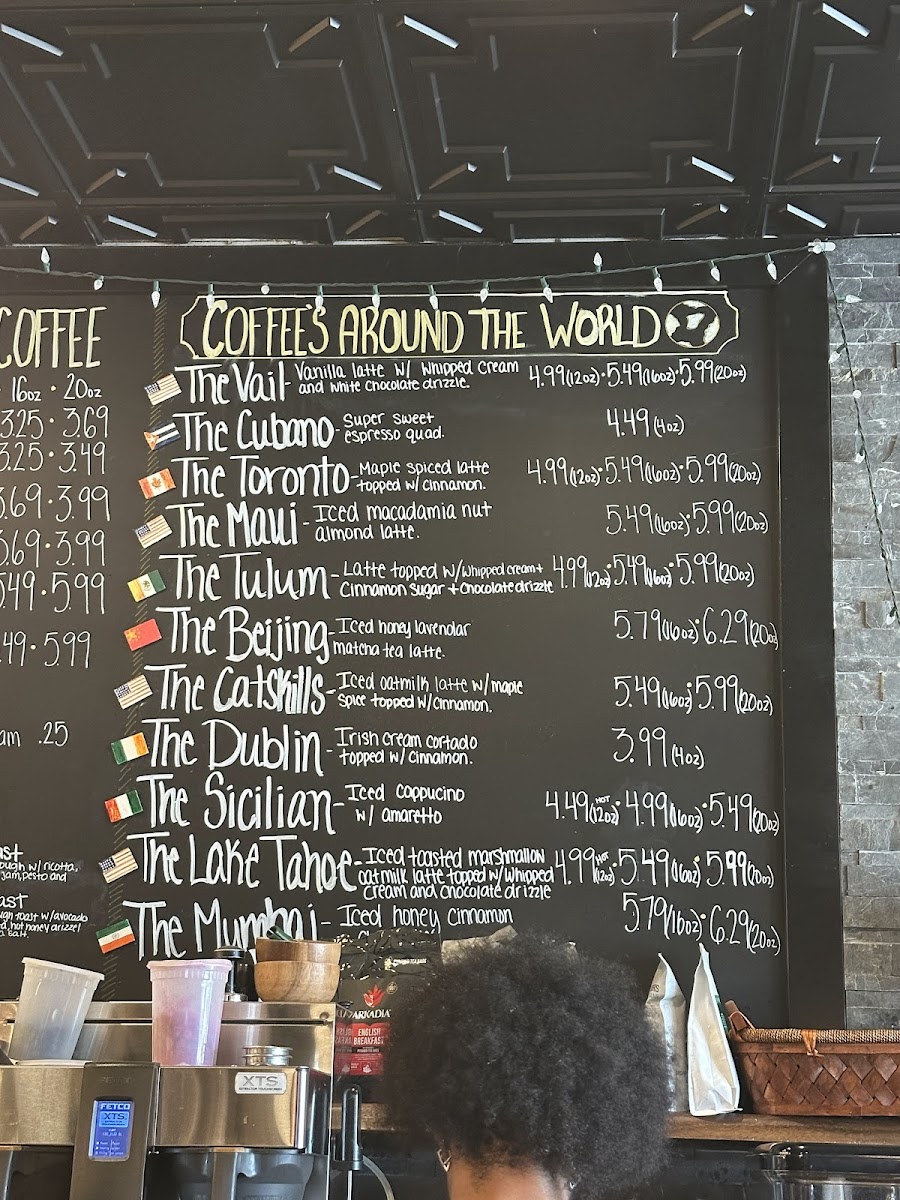 COFFEE
16oz · 20oz
3.25 · 3.69
3.25 · 3.49
3.69 · 3.99
3.69 · 3.99
5.49 · 5.99
.49 · 5.99
.25
w/ ricotta,
jam, pesto and
toast w/ avocado
hot honey drizzel
salt.
COFFEE'S AROUND THE WORLD
The Vail - Vanilla latte w/ whipped cream
and white chocolate drizzle.
4.99(12oz) · 5.49(16oz) · 5.99(20oz)
The Cubano - Super sweet
espresso quad.
4.49(4oz)
The Toronto - Maple spiced latte
topped w/ cinnamon.
4.99(12oz) · 5.49(16oz) · 5.99(20oz)
The Maui - Iced macadamia nut
almond latte.
5.49(16oz) · 5.99(20oz)
The Tulum - Latte topped w/ whipped cream +
cinnamon sugar + chocolate drizzle
4.99(12oz) · 5.49(16oz) · 5.99(20oz)
The Beijing - Iced honey lavendar
matcha tea latte.
5.79(16oz) · 6.29(20oz)
The Catskills - Iced oatmilk latte w/ maple
spice topped w/ cinnamon.
5.49(16oz) · 5.99(20oz)
The Dublin - Irish cream cortado
topped w/ cinnamon.
3.99(4oz)
The Sicilian - Iced cappucino
w/ amaretto
4.49(HOT 12oz) · 4.99(16oz) · 5.49(20oz)
The Lake Tahoe - Iced toasted marshmallow
oatmilk latte topped w/ whipped
cream and chocolate drizzle
4.99(HOT 12oz) · 5.49(16oz) · 5.99(20oz)
The Mumbai - Iced honey cinnamon
5.79(16oz) · 6.29(20oz)
ARKADIA
ENGLISH
BREAKFAST
XTS
FETCO
XTS